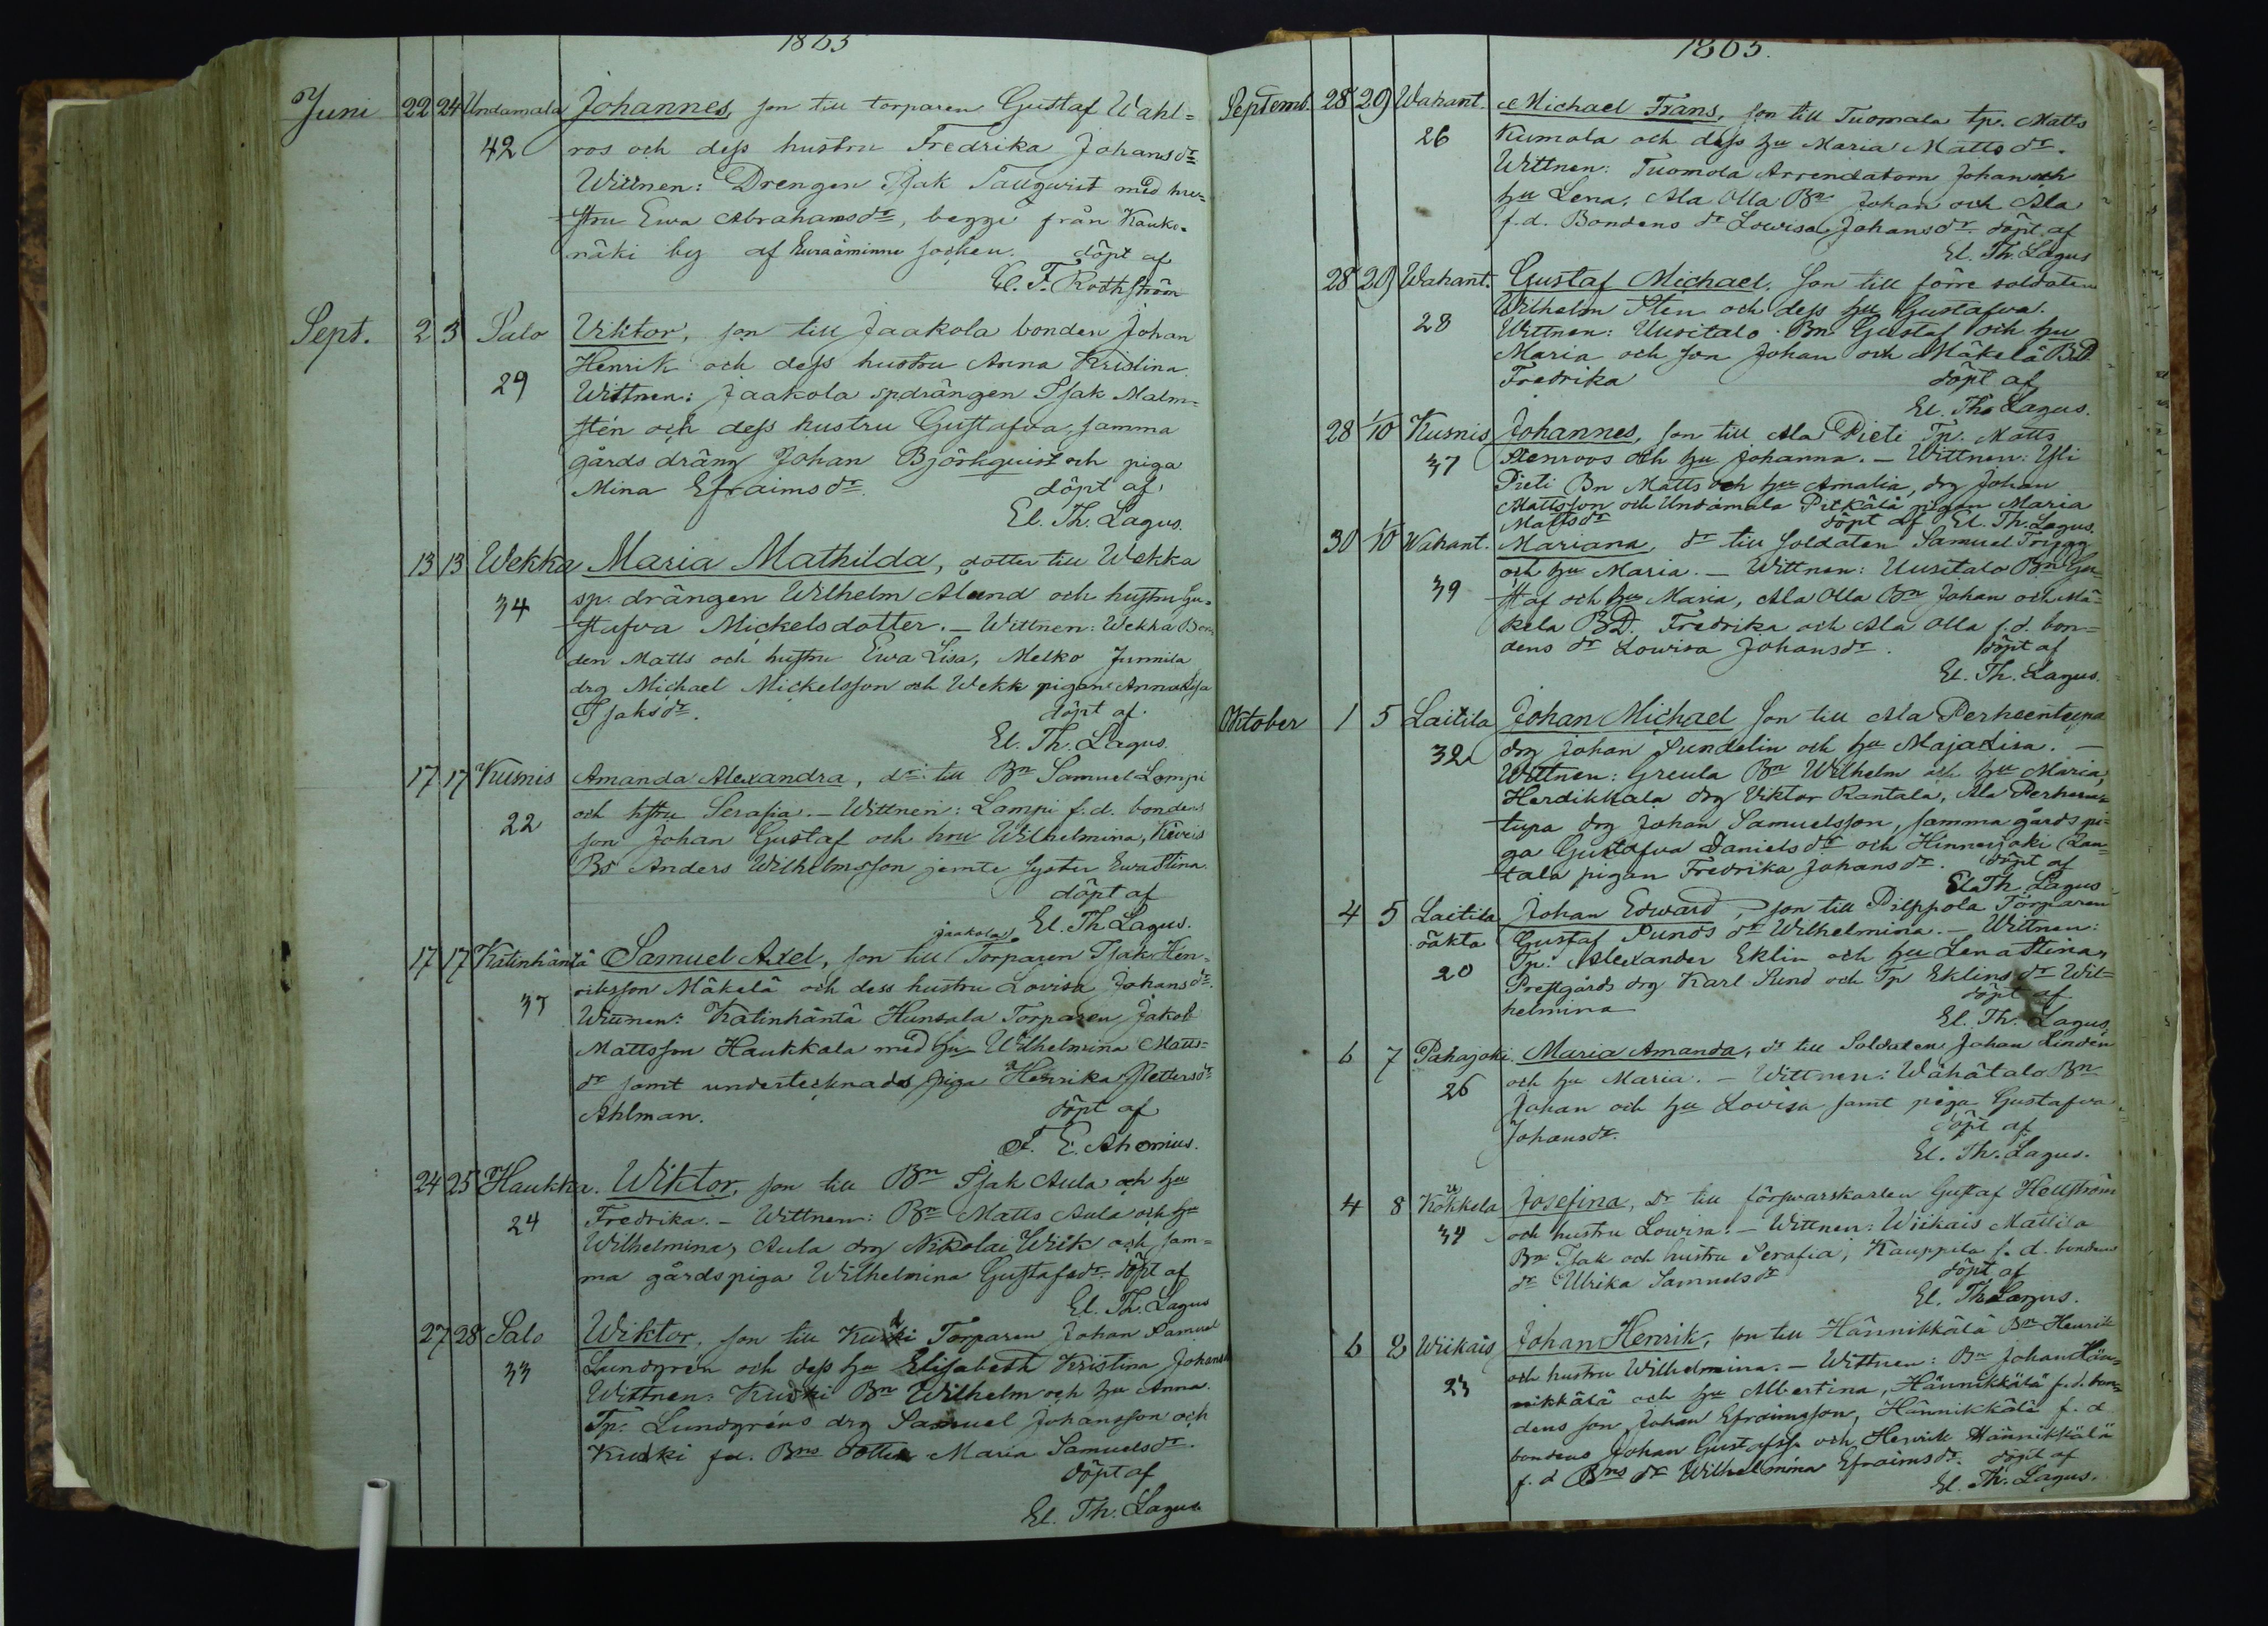 1865
Juni 22 24 Undamala Johannes, son till torparen Gustaf Wahl=
42 ros och dess hustru Fredrika Johansdr
Wittnen: Drengen Isak Tallqvist med hu=
stru Ewa Abrahamsdr, begge från Kauko=
näki by af Euraåminne socken. döpt af
C. F. Rothström
Sept. 2 3 Salo Viktor, son till Jaakola bonden Johan
Henrik och dess hustru Anna Kristina.
29 Wittnen: Jaakola sp.drängen Isak Malm=
stén och dess hustru Gustafva, samma
gårds dräng Johan Björkquist och piga
Mina Efraimsdr. döpt af
El. Th. Lagus.
13 13 Wekka Maria Mathilda, dotter till Wekka
34 sp. drängen Wilhelm Ålund och hustru Gu=
stafva Mickelsdotter. – Wittnen: Wekka Bon=
den Matts och hustru Ewa Lisa, Melko Junnila
drg Michael Mickelsson och Wekk pigan Anna Lisa
Isaksdr. döpt af
El. Th. Lagus.
17 17 Kusnis Amanda Alexandra, dr till Bn Samuel Lampi
22 och hstru Serafia. – Wittnen: Lampi f.d. bondens
son Johan Gustaf och hru Wilhelmina,
Bs Anders Wilhelmsson jemte syster Ewa Stina.
döpt af
El. Th. Lagus.
Jaakola
17 17 Katinhäntä Samuel Axel, son till Torparen Isak Hen=
riksson Mäkelä och dess hustru Lovisa Johansdr.
37 Wittnen: Katinhäntä Hunsala Torparen Jakob
Mattsson Haukkala med hu Wilhelmina Matts=
dr samt undertecknades piga Henrika Pettersdr
Ahlman. döpt af
F. E. Ahonius.
24 25 Haukka. Wiktor, son till Bn Isak Aula och hu
24 Fredrika. – Wittnen: Bn Matts Aula och hu
Wilhelmina, Aula drg Nikolai Wiik och sam=
ma gårds piga Wilhelmina Gustafsdr. döpt af
El. Th. Lagus
27 28 Salo Wiktor, son till Kuski Torparen Johan Samuel
33 Lundgrén och dess hu Elisabeth Kristina Johansdr
Wittnen: Kuski Bn Wilhelm och hu Anna.
Tp. Lundgréns drg Samuel Johansson och
Kuski f.d. Bns dotter Maria Samuelsdr.
döpt af
El. Th. Lagus
1865.
Septemb. 28 29 Wahant. Michael Frans, son till Tuomala tp. Matts
26 Kumola och dess hu Maria Mattsdr.
Wittnen: Tuomola Arrendatorn Johan och
hu Lena, Ala Olla Bn Johan och Ala
f.d. Bondens dr Lowisa Johansdr döpt af
El. Th. Lagus
28 29 Wahant. Gustaf Michael, son till förre soldaten
Wilhelm Sten och dess hu Gustafva.
28 Wittnen: Uusitalo Bn Gustaf och hu
Maria och son Johan och Mäkelä BD
Fredrika döpt af
El. Th. Lagus.
28 1/10 Kusnis Johannes, son till Ala Pieti Tp. Matts
37 Stenroos och hu Johanna. – Wittnen: Yli
Pieti Bn Matts och hu Amalia, drg Johan
Mattsson och Undamala Pitkälä pigan Maria
Mattsdr döpt af El. Th. Lagus.
30 1/10 Wahant. Mariana, dr till soldaten Samuel Trygg
och hu Maria. – Wittnen: Uusitalo Bn Gu=
39 staf och hu Maria, Ala Olla Bn Johan och Mä=
kela BD. Fredrika och Ala Olla f.d. bon=
dens dr Lowisa Johansdr. döpt af
El. Th. Lagus.
Oktober 1 5 Laitila Johan Michael son till Ala Perheentupa
32 drg Johan Sundelin och hu Maja Lisa. –
Wittnen: Greula Bn Wilhelm och hu Maria,
Herdikkala drg Viktor Rantala, Ala Perheen=
tupa drg Johan Samuelsson, samma gårds pi=
ga Gustafva Danielsdr och Hinnerjoki Ran=
tala pigan Fredrika Johansdr. döpt af
El. Th. Lagus
4 5 Laitila Johan Edward, son till Pilppola Torparen
oäkta Gustaf Punds dr Wilhelmina. – Wittnen:
20 Tp. Alexander Eklin och hu Lena Stina,
Prestgårds drg Karl Sund och Tp Eklins dr Wil=
helmina döpt af
El. Th. Lagus
6 7 Pahajoki. Maria Amanda, dr till Soldaten Johan Lindén
26 och hu Maria. – Wittnen: Wähätalo Bn
Johan och hu Lovisa samt piga Gustafva
Johansdr. döpt af
El. Th. Lagus.
4 8 Kökkela Josefina, dr till försvarskarlen Gustaf Hellström
34 och hustru Lowisa. – Wittnen: Wiikais Mattila
Bn Isak och hustru Serafia, Kauppila f.d. bondens
dr Ulrika Samuelsdr döpt af
El. Th. Lagus.
6 8 Wiikais Johan Henrik, son till Hännikkälä Bn Henrik
och hustru Wilhelmina. – Wittnen: Bn Johan Hän=
23 nikkälä och hu Albertina, Hännikkälä f.d. bon=
dens son Johan Efraimsson, Hännikkälä f.d
bondens Johan Gustafss. och Henrik Hännikkälä
f.d Bns dr Wilhelmina Efraimsdr. döpt af
El. Th. Lagus.